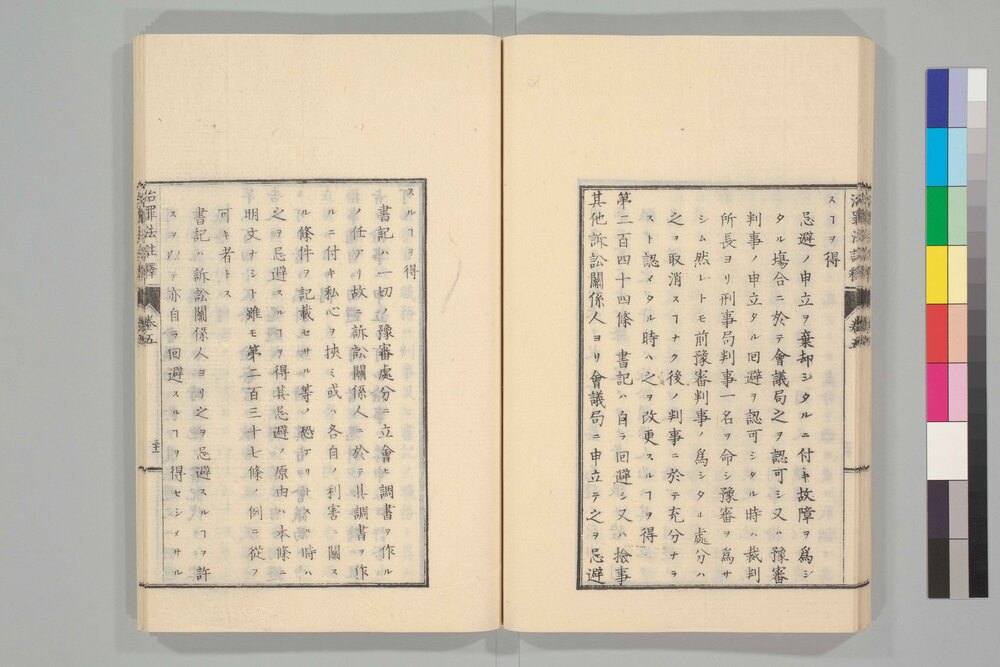 スヿヲ得
忌避ノ申立ヲ棄却シタルニ付キ故障ヲ爲シ
タル塲合ニ於テ會議局之ヲ認可シ又ハ豫審
判事ノ申立タル回避ヲ認可シタル時ハ裁判
所長ヨリ刑事局判事一名ヲ命シ豫審ヲ爲サ
シム然レトモ前豫審判事ノ爲シタル處分ハ
之ヲ取消スヿナク後ノ判事ニ於テ充分ナラ
スト認メタル時ハ之ヲ改更スルヿヲ得
第二百四十四條 書記ハ自ラ回避シ又ハ撿事
其他訴訟關係人ヨリ會議局ニ申立テ之ヲ忌避
スルヿヲ得
書記ハ一切ノ豫審處分ニ立會ヒ調書ヲ作ル
ノ任アリ故ニ訴訟關係人ニ於テ其調書ヲ作
ルニ付キ私心ヲ挾ミ或ハ各自ノ利害ニ關ス
ル條件ヲ記載セサル等ノ恐アリトスル時ハ
之ヲ忌避スルヿヲ得其忌避ノ原由ハ本條ニ
明文ナシト雖モ第二百三十七條ノ例ニ從フ
可キ者トス
書記ハ訴訟關係人ヨリ之ヲ忌避スルヿヲ許
スヲ以テ亦自ラ回避スルヿヲ得セシメサル
治罪法註釋 卷五